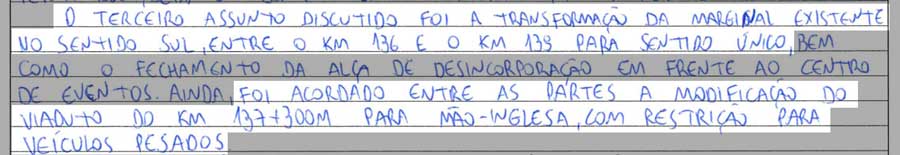 O TERCEIRO ASSUNTO DISCUTIDO FOI A TRANSFORMAÇÃO DA MARGINAL EXISTENTE
NO SENTIDO SUL, ENTRE O KM 136 E O KM 139 PARA SENTIDO ÚNICO, BEM
COMO O FECHAMENTO DA ALÇA DE DESINCORPORAÇÃO EM FRENTE AO CENTRO
DE EVENTOS. AINDA, FOI ACORDADO ENTRE AS PARTES A MODIFICAÇÃO DO
VIADUTO DO KM 137+300M PARA MÃO-INGLESA, COM RESTRIÇÃO PARA
VEÍCULOS PESADOS